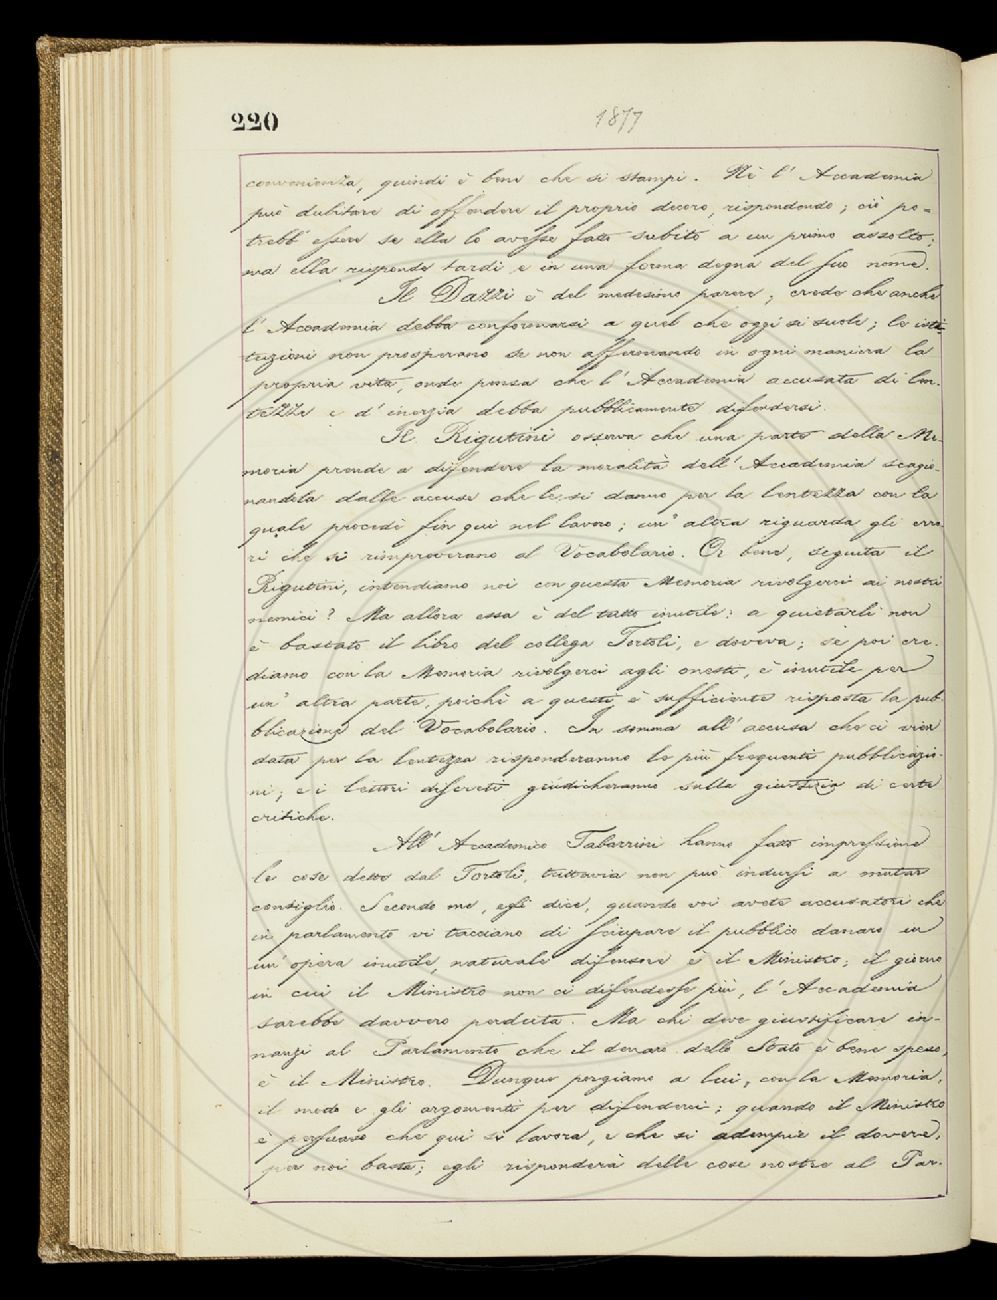 220
1877
convenienza, quindi è bene che si stampi. Nè l'Accademia
può dubitare di offendere il proprio decoro, rispondendo; ciò po-
trebb'essere se ella lo avesse fatto subito a un primo assalto;
ma ella risponde tardi e in una forma degna del suo nome.
Il Dazzi è del medesimo parere; crede che anche
l'Accademia debba conformarsi a quel che oggi si suole; le isti-
tuzioni non prosperano se non affermando in ogni maniera la
propria vita, onde pensa che l'Accademia accusata di len-
tezza e d'inerzia debba pubblicamente difendersi.
Il Rigutini osserva che una parte della Me-
moria prende a difendere la moralità dell'Accademia scagio-
nandola dalle accuse che le si danno per la lentezza con la
quale procedè fin qui nel lavoro; un'altra riguarda gli erro-
ri che si rimproverano al Vocabolario. Or bene, seguita il
Rigutini, intendiamo noi con questa Memoria rivolgerci ai nostri
nemici? Ma allora essa è del tutto inutile: a quietarli non
è bastato il libro del collega Tortoli, e doveva; se poi cre-
diamo con la Memoria rivolgerci agli onesti, è inutile per
un'altra parte, poichè a questi è sufficiente risposta la pub-
blicazione del Vocabolario. In somma all'accusa che ci vien
data per la lentezza risponderanno le più frequenti pubblicazio-
ni; e i lettori discreti giudicheranno sulla giustizia di certe
critiche.
All'Accademico Tabarrini hanno fatto impressione
le cose dette dal Tortoli, tuttavia non può indursi a mutar
consiglio. Secondo me, egli dice, quando voi avete accusatori che
in parlamento vi tacciano di sciupare il pubblico danaro in
un'opera inutile, naturale difensore è il Ministro; il giorno
in cui il Ministro non ci difendesse più, l'Accademia
sarebbe davvero perduta. Ma chi deve giustificare in-
nanzi al Parlamento che il denaro dello Stato è bene speso,
è il Ministro. Dunque porgiamo a lui, con la Memoria,
il modo e gli argomenti per difenderci; quando il Ministro
è persuaso che qui si lavora, e che si adempie il dovere,
per noi basta; egli risponderà delle cose nostre al Par-